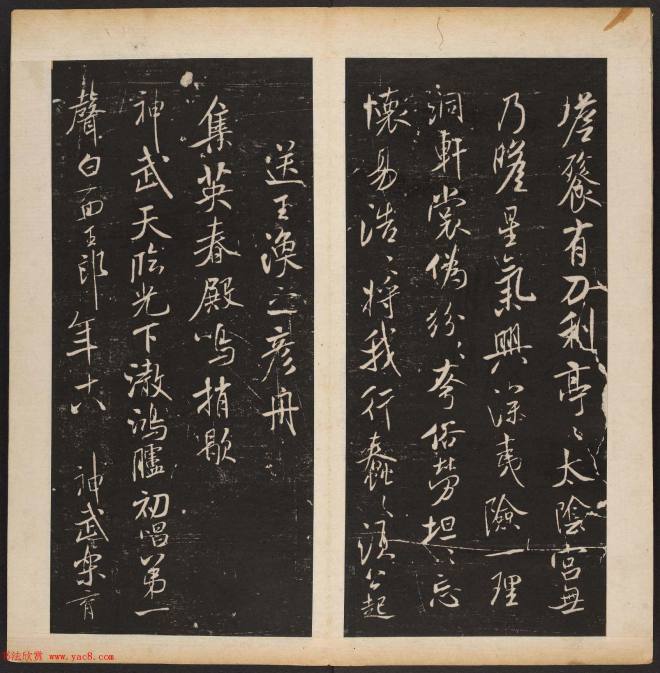 嗟餮有刀利亭〻太陰宮無
乃瞻星氣興深夷險一理
洞軒裳偽紛〻夸俗勞坦〻忘
懷易浩〻將我行蠢〻須公起
送王渙之彥舟
集英春殿鳴捎歇
神武天臨光下澈鴻臚初唱第一
聲白面玉郎年十八神武樂育
书法欣赏 www.yac8.com